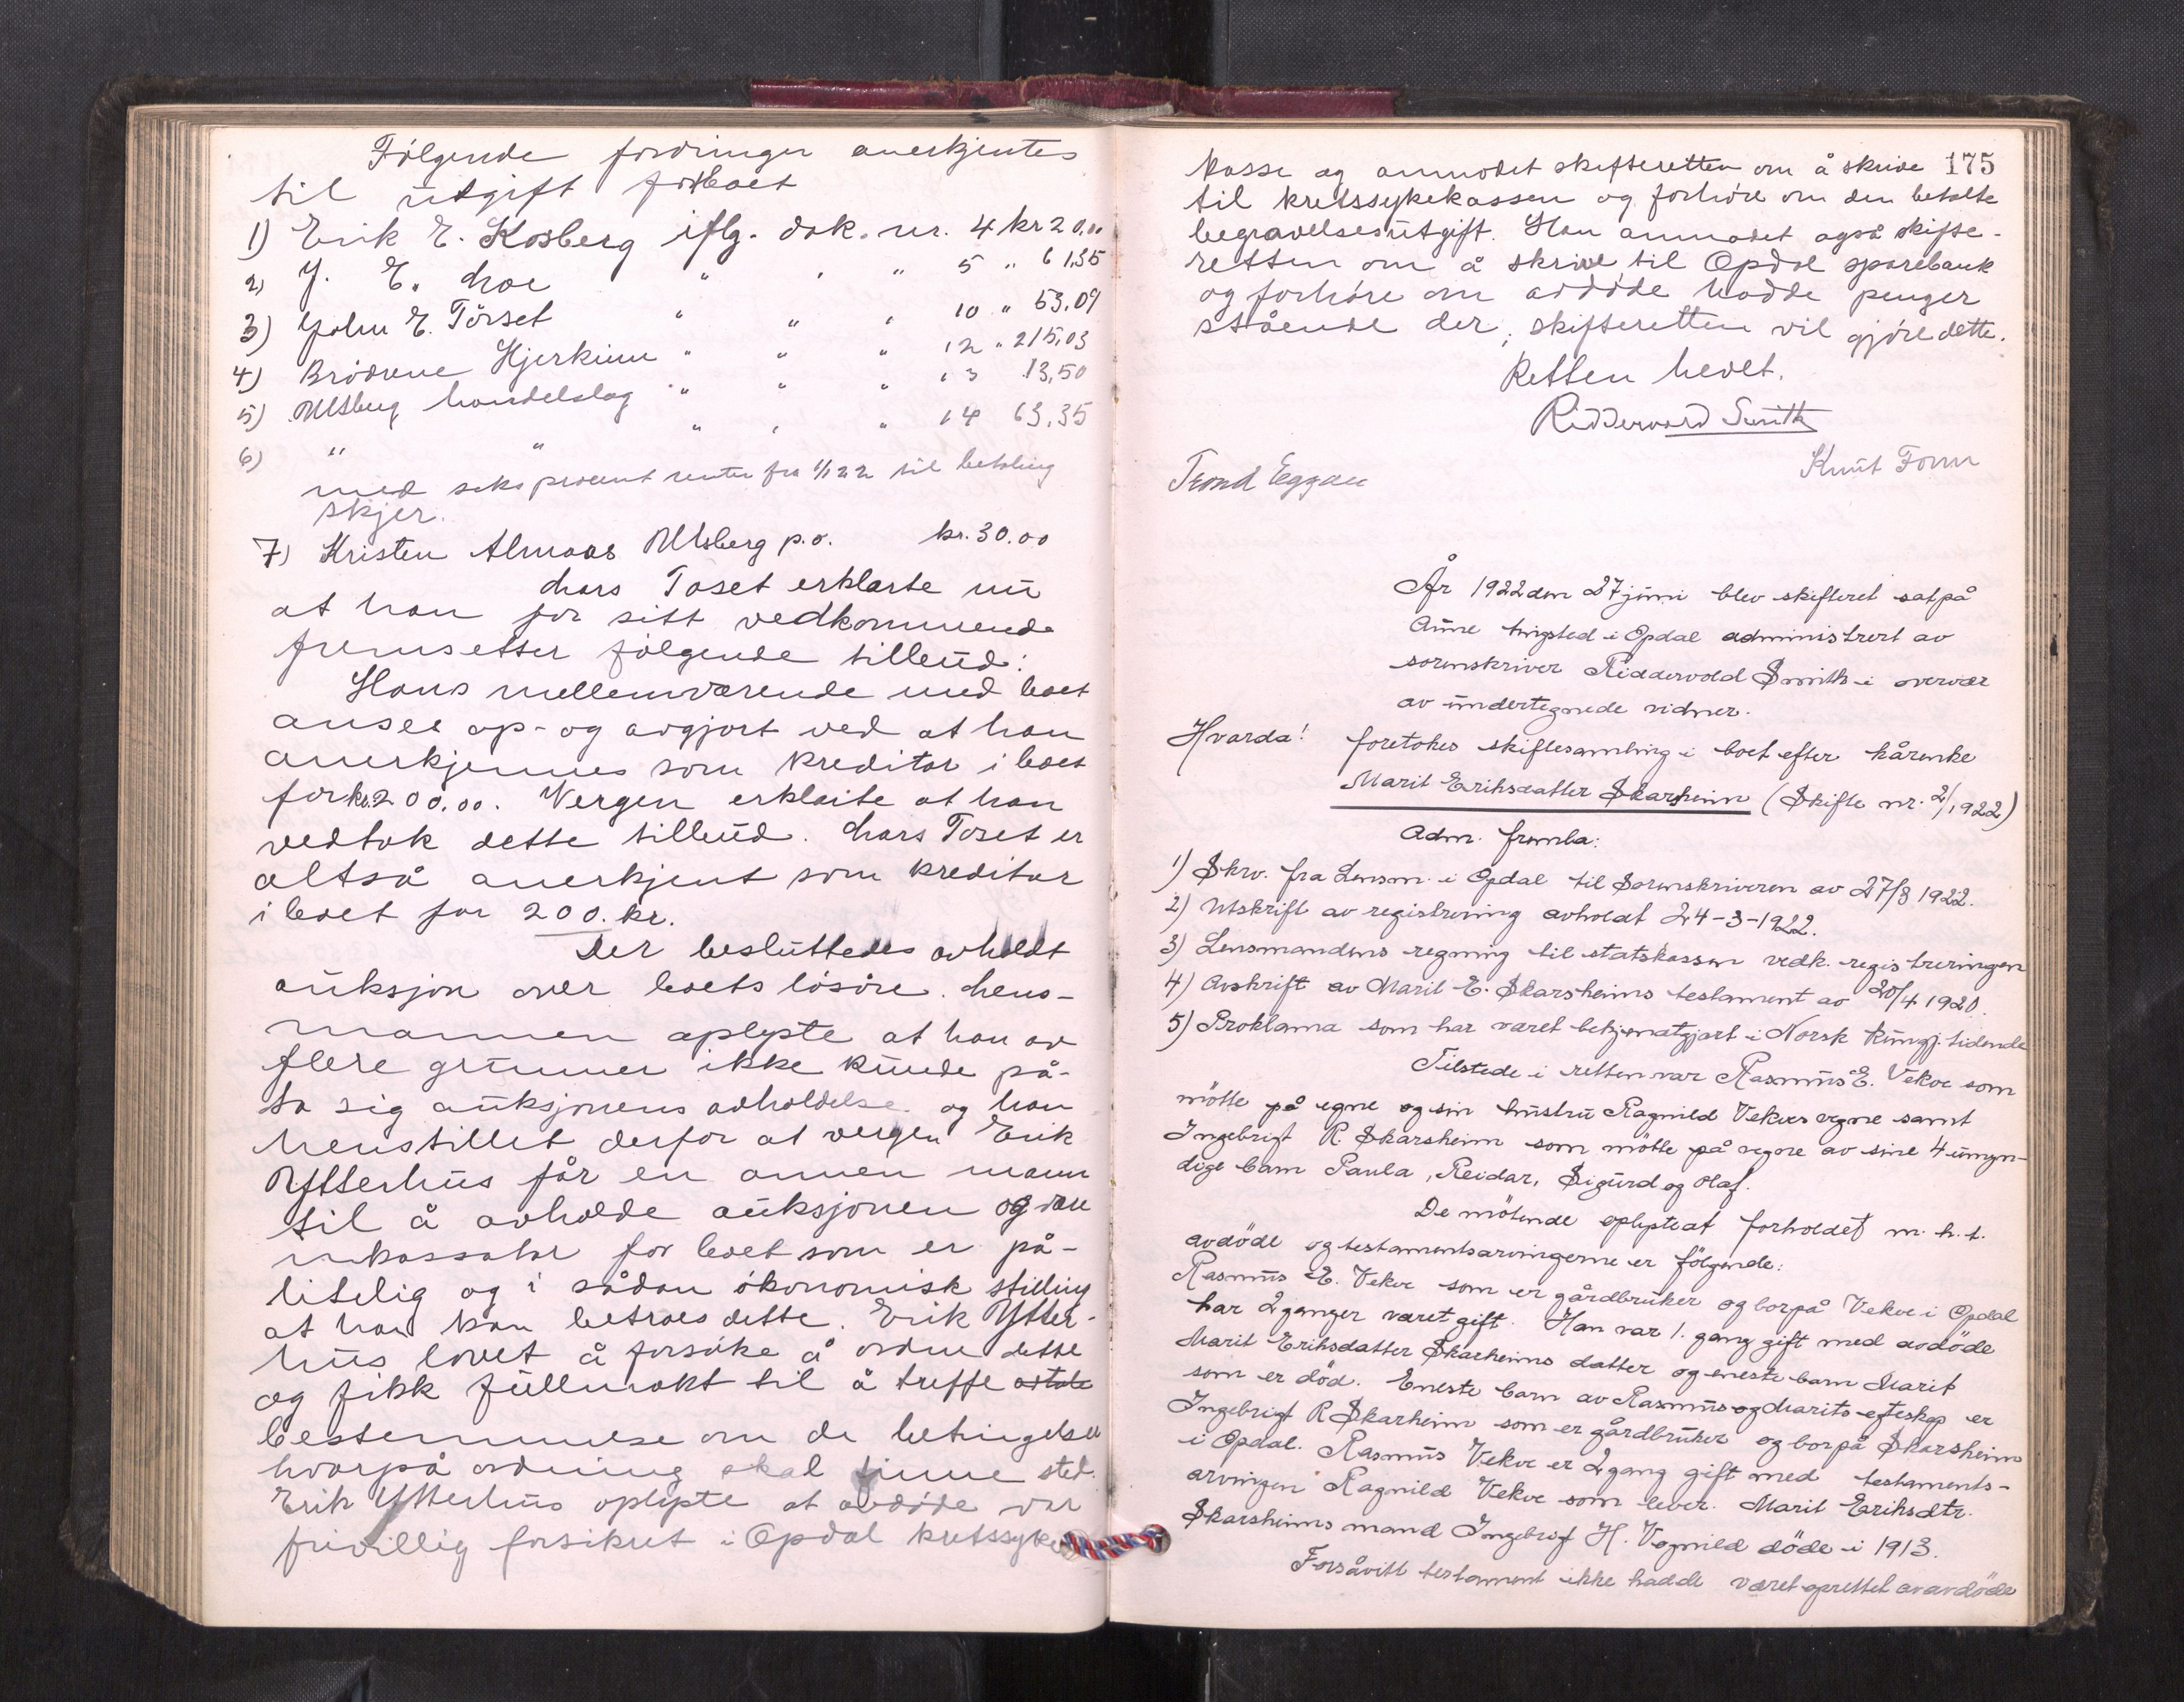 Følgende fordringer anerkjentes
til utgift for boet
1) Erik E. Kosberg iflg. dok. nr. 4 kr 20.00
2) J. E. Loe " " " 5 " 61,35
3) John E. Törset " " " 10 " 53,09
4) Brödrene Hjerkinn " " " 12 " 215,03
5) Ulsberg handelslag " " " 13 13,50
6) " " " " " 14 63,35
med seks procent renter fra 1/1 22 til betaling
skjer.
7) Kristen Almaas Ulsberg p.o. kr. 30.00
Lars Toset erklærte nu
at han for sitt vedkommende
fremsetter følgende tilbud:
Hans mellemværende med boet
ansees op- og avgjort ved at han
anerkjennes som kreditor i boet
for kr. 200.00. Vergen erklærte at han
vedtok dette tilbud. Lars Toset er
altså anerkjent som kreditor
i boet for 200. kr.
Der besluttedes avholdt
auksjon over boets lösöre. Lens-
mannen oplyste at han av
flere grunner ikke kunde på-
ta sig auksjonens avholdelse og han
henstillet derfor at vergen Erik
Ytterhus får en annen mann
til å avholde auksjonen og være
inkassator for boet som er på-
litelig og i sådan ökonomisk stilling
at han kan betroes dette. Erik Ytter-
hus lovet å forsöke å ordne dette
og fikk fullmakt til å treffe
bestemmelse om de betingelser
hvorpå ordning skal finne sted.
Erik Ytterhus oplyste at avdöde var
frivillig forsikret i Opdal kretssyke
kasse og anmodet skifteretten om å skrive 175
til kretssykekassen og forhöre om den betalte
begravelsesutgift. Han anmodet også skifte-
retten om å skrive til Opdal sparebank
og forhöre om avdöde hadde penger
stående der; skifteretten vil gjöre dette.
Retten hevet.
Riddervold Smith
Knut Forun
Trond Eggan
År 1922 den 27 juni blev skifteret sat på
Aune tingsted i Opdal administrert av
sorenskriver Riddervold Smith i overvær
av undertegnede vidner.
Hvorda! foretokes skiftesamling i boet efter kårenke
Marit Eriksdatter Skarsheim (Skifte nr. 2/1922)
Adm. fremla:
1) Skrv. fra Lensm. i Opdal til Sorenskriveren av 27/3 1922.
2) Utskrift av registrering avholdt 24-3-1922.
3) Lensmandens regning til statskassen vedk. registreringen
4) Avskrift av Marit E. Skarsheims testament av 20/4 1920.
5) Proklama som har været bekjentgjort i Norsk kungj. tidende
Tilstede i retten var Rasmus E. Vekve som
mötte på egne og sin hustru Ragnild Vekves vegne samt
Ingebrigt R. Skarsheim som mötte på vegne av sine 4 umyn-
dige barn Paula, Reidar, Sigurd og Olaf.
De mötende oplyste at forholdet m. h. t.
avdöde og testamentsarvingerne er fölgende:
Rasmus E. Vekve som er gårdbruker og bor på Vekve i Opdal
har 2 ganger været gift. Han var 1. gang gift med avdöde
Marit Eriksdatter Skarheims datter og eneste barn Marit
som er död. Eneste barn av Rasmus og Marits egteskap er
Ingebrigt R Skarheim som er gårdbruker og bor på Skarsheim
i Opdal. Rasmus Vekve er 2 gang gift med testaments-
arvingen Ragnild Vekve som lever. Marit Eriksdtr.
Skarsheims mand Ingebrigt H. Vognild döde i 1913.
Forsåvitt testament ikke hadde været oprettet av avdöde